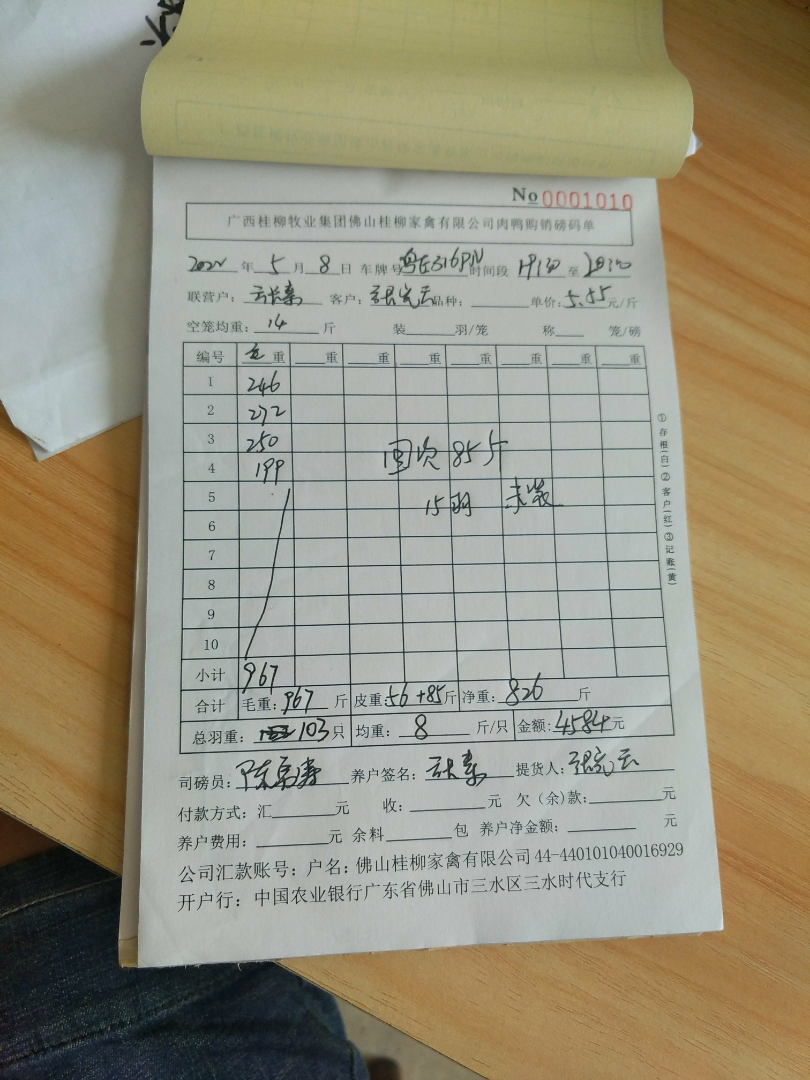 No 0001010
广西桂柳牧业集团佛山桂柳家禽有限公司肉鸭购销磅码单
2022年5月8日 车牌号粤E316PN时间段 至
联营户: 客户: 品种: 单价:5.55元/斤
空笼均重:14斤 装 羽/笼 称 笼/磅
编号 毛重 重 重 重 重 重 重 重
1 246
2 272
3 250
4 199
85斤
5
15羽 未装
6
7
8
9
10
小计 967
合计 毛重:967斤 皮重:56+85斤 净重:826斤
总羽重:103只 均重:8斤/只 金额:4584元
司磅员: 养户签名: 提货人:
付款方式:汇 元 收: 元 欠(余)款: 元
养户费用: 元 余料 包 养户净金额: 元
公司汇款账号:户名:佛山桂柳家禽有限公司44-440101040016929
开户行:中国农业银行广东省佛山市三水区三水时代支行
①存根(白)②客户(红)③记账(黄)